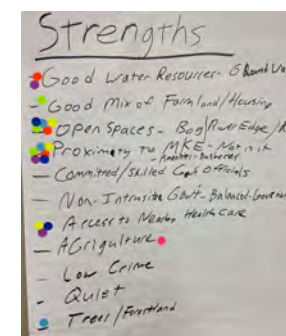 Strengths
- Good Water Resources - Ground Wa
- Good Mix of Farmland/Housing
- OPEN Spaces - Bog/River Edge/
- Proximity to MKE - Not in it
- Amenities - Businesses
- Committed/Skilled Gov't Officials
- Non-Intrusive Gov't - Balanced
Access to Nearby Health Care
- AGrigulture
- Low Crime
- Quiet
- Trees/Forestland